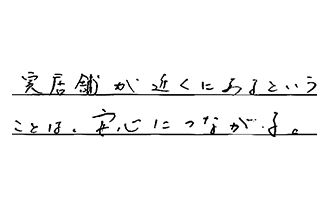 実店舗が近くにあるという
ことは、安心につながる。